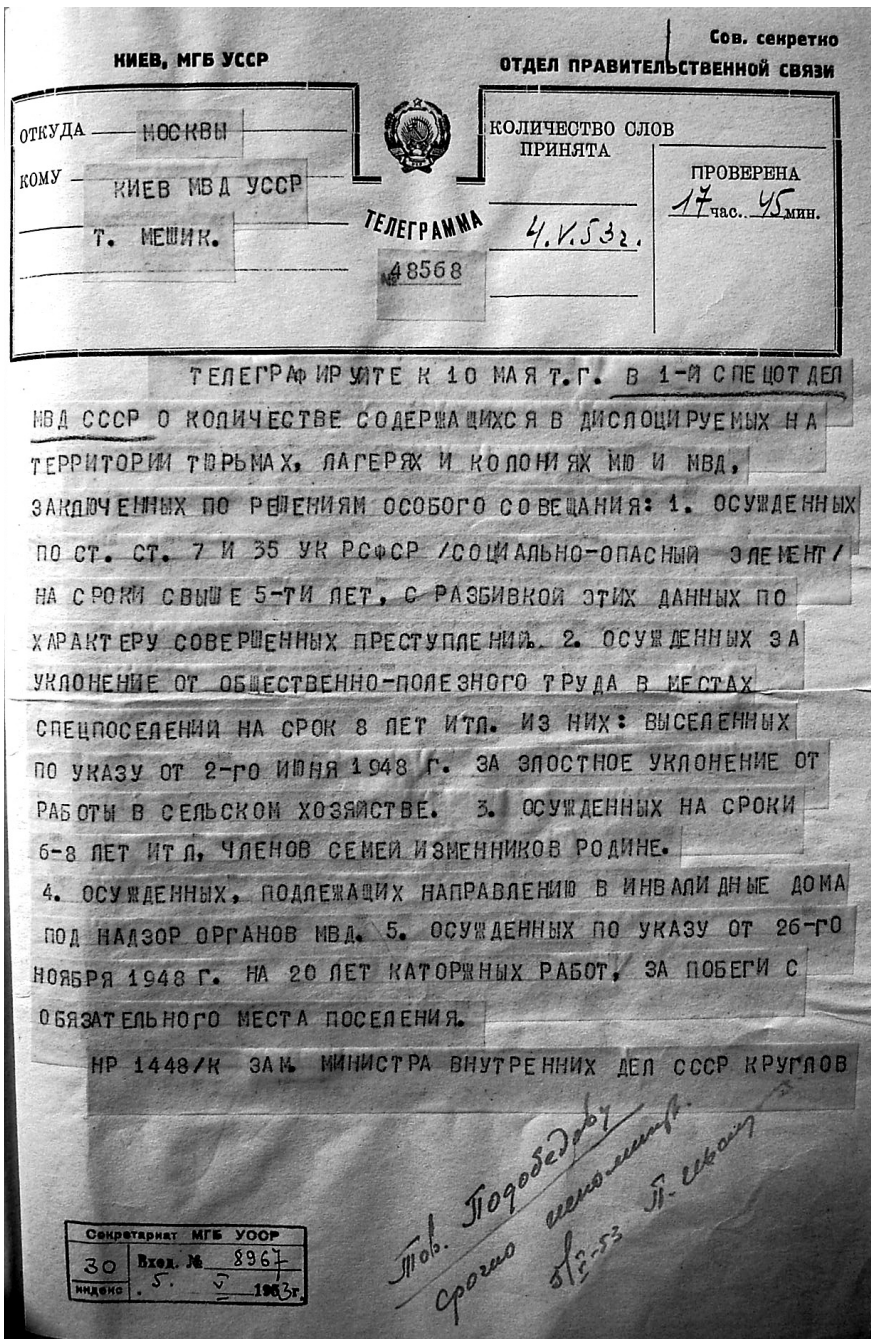 Сов. секретно
КИЕВ, МГБ УССР
ОТДЕЛ ПРАВИТЕЛЬСТВЕННОЙ СВЯЗИ
ОТКУДА МОСКВЫ
КОМУ КИЕВ МВД УССР
Т. МЕШИК.
ТЕЛЕГРАММА
№ 48568
КОЛИЧЕСТВО СЛОВ
ПРИНЯТА
4.V.53г.
ПРОВЕРЕНА
17 час. 45 мин.
ТЕЛЕГРАФИРУЙТЕ К 10 МАЯ Т.Г. В 1-Й СПЕЦОТДЕЛ
МВД СССР О КОЛИЧЕСТВЕ СОДЕРЖАЩИХСЯ В ДИСЛОЦИРУЕМЫХ НА
ТЕРРИТОРИИ ТЮРЬМАХ, ЛАГЕРЯХ И КОЛОНИЯХ МЮ И МВД,
ЗАКЛЮЧЕННЫХ ПО РЕШЕНИЯМ ОСОБОГО СОВЕЩАНИЯ: 1. ОСУЖДЕННЫХ
ПО СТ. СТ. 7 И 35 УК РСФСР /СОЦИАЛЬНО-ОПАСНЫЙ ЭЛЕМЕНТ/
НА СРОКИ СВЫШЕ 5-ТИ ЛЕТ, С РАЗБИВКОЙ ЭТИХ ДАННЫХ ПО
ХАРАКТЕРУ СОВЕРШЕННЫХ ПРЕСТУПЛЕНИЙ. 2. ОСУЖДЕННЫХ ЗА
УКЛОНЕНИЕ ОТ ОБЩЕСТВЕННО-ПОЛЕЗНОГО ТРУДА В МЕСТАХ
СПЕЦПОСЕЛЕНИЙ НА СРОК 8 ЛЕТ ИТЛ. ИЗ НИХ: ВЫСЕЛЕННЫХ
ПО УКАЗУ ОТ 2-ГО ИЮНЯ 1948 Г. ЗА ЗЛОСТНОЕ УКЛОНЕНИЕ ОТ
РАБОТЫ В СЕЛЬСКОМ ХОЗЯЙСТВЕ. 3. ОСУЖДЕННЫХ НА СРОКИ
6-8 ЛЕТ ИТЛ, ЧЛЕНОВ СЕМЕЙ ИЗМЕННИКОВ РОДИНЕ.
4. ОСУЖДЕННЫХ, ПОДЛЕЖАЩИХ НАПРАВЛЕНИЮ В ИНВАЛИДНЫЕ ДОМА
ПОД НАДЗОР ОРГАНОВ МВД. 5. ОСУЖДЕННЫХ ПО УКАЗУ ОТ 26-ГО
НОЯБРЯ 1948 Г. НА 20 ЛЕТ КАТОРЖНЫХ РАБОТ, ЗА ПОБЕГИ С
ОБЯЗАТЕЛЬНОГО МЕСТА ПОСЕЛЕНИЯ.
НР 1448/К ЗАМ. МИНИСТРА ВНУТРЕННИХ ДЕЛ СССР КРУГЛОВ
Тов. Подобедову
срочно
5/V-53
Секретариат МГБ УССР
30 Вход. № 8967
индекс 5. V 1953г.